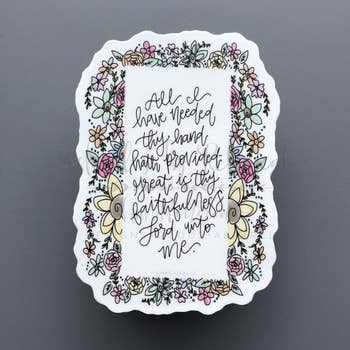 All I
have needed
thy hand
hath provided.
great is thy
faithfulness
Lord unto
me.